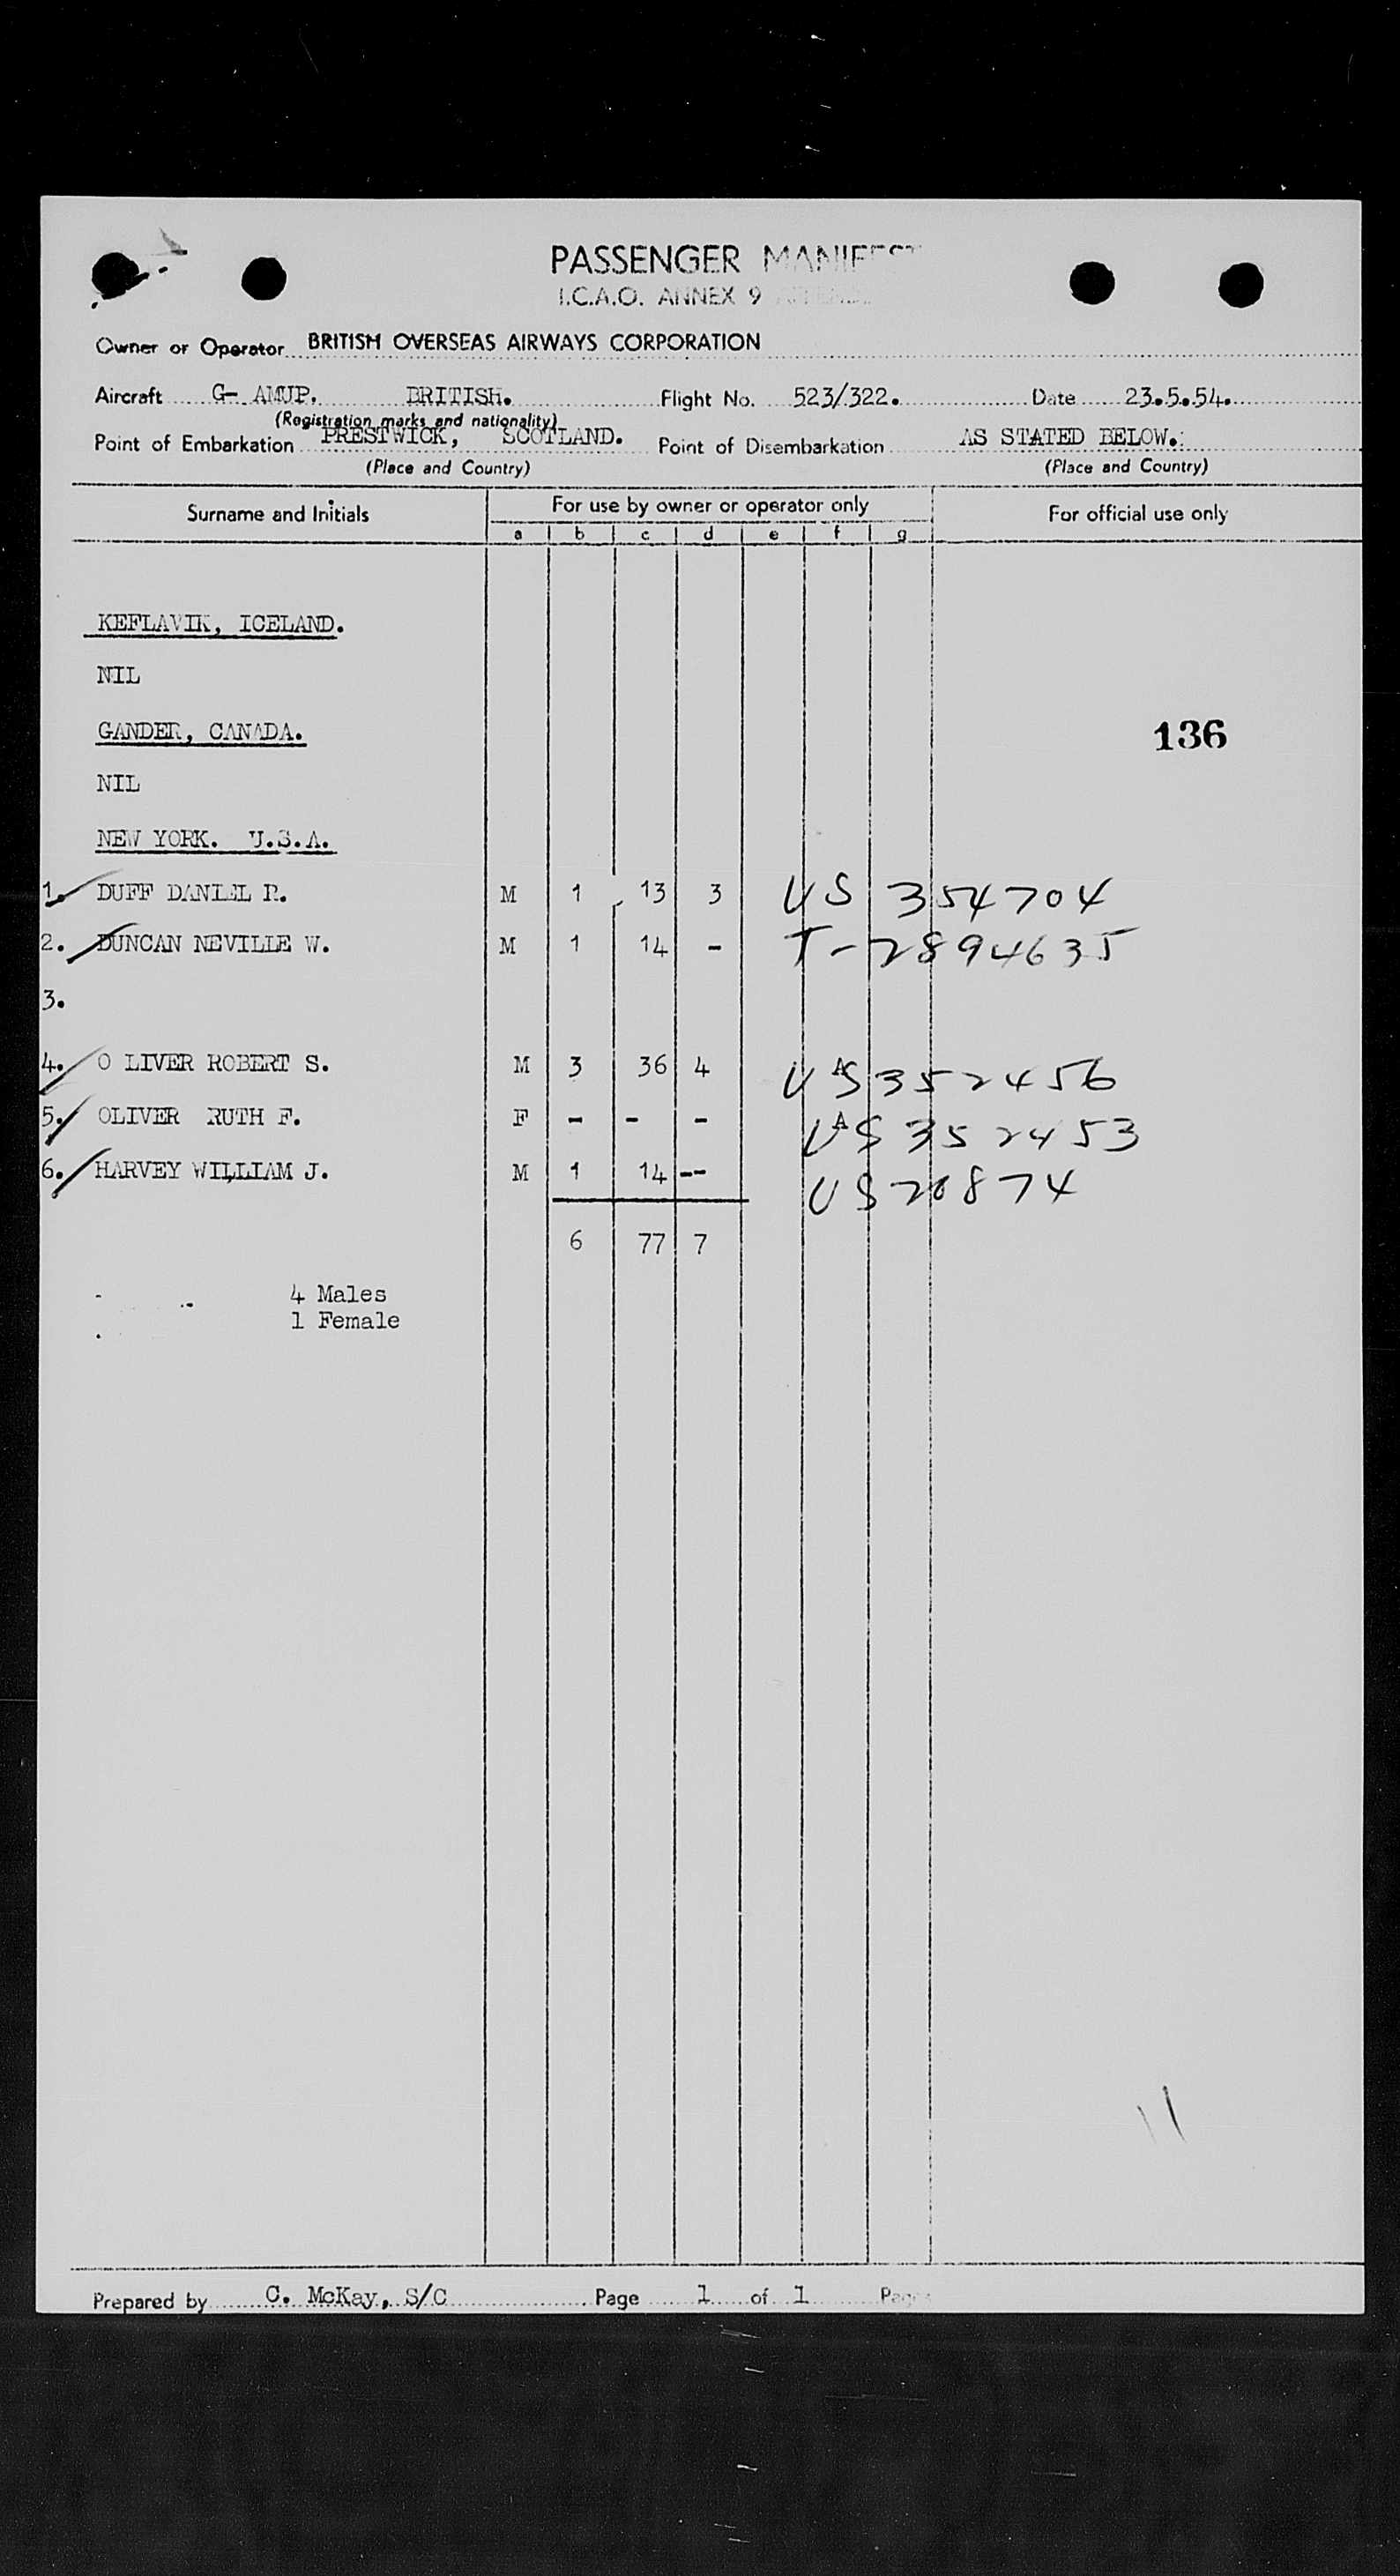 PASSENGER MANIFEST
I.C.A.O. ANNEX 9
Owner or Operator BRITISH OVERSEAS AIRWAYS CORPORATION
Aircraft G- AMUP. BRITISH. Flight No. 523/322. Date 23.5.54.
(Registration marks and nationality)
Point of Embarkation PRESTWICK, SCOTLAND. Point of Disembarkation AS STATED BELOW.:
(Place and Country) (Place and Country)
Surname and Initials For use by owner or operator only For official use only
a b c d e f g
KEFLAVIK, ICELAND.
NIL
GANDER, CANADA. 136
NIL
NEW YORK. U.S.A.
1. DUFF DANIEL R. M 1 13 3 US 354704
2. DUNCAN NEVILLE W. M 1 14 - T-2894635
3.
4. O LIVER ROBERT S. M 3 36 4 UAS 352456
5. OLIVER RUTH F. F - - - UAS 352453
6. HARVEY WILLIAM J. M 1 14 -- US 20874
6 77 7
4 Males
1 Female
Prepared by C. McKay, S/C Page 1 of 1 Pages